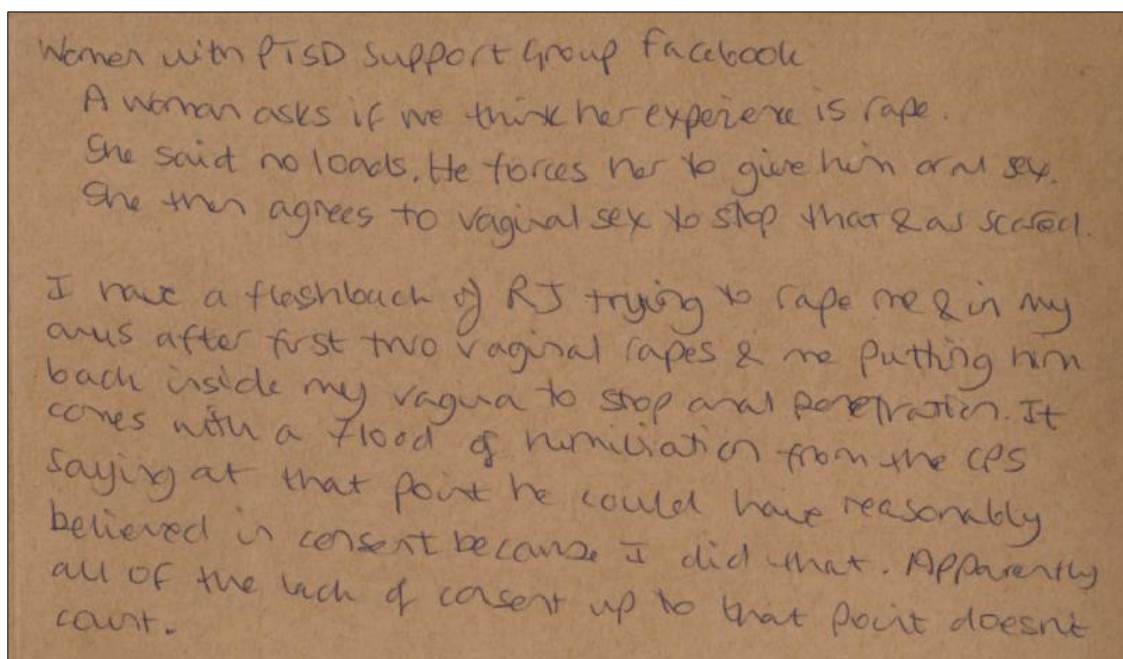 Women with PTSD support Group Facebook
A woman asks if we think her experience is rape.
She said no loads. He forces her to give him oral sex.
She then agrees to vaginal sex to stop that & as scared.
I have a flashback of RJ trying to rape me & in my
anus after first two vaginal rapes & me putting him
back inside my vagina to stop anal penetration. It
comes with a flood of humiliation from the CPS
saying at that point he could have reasonably
believed in consent because I did that. Apparently
all of the lack of consent up to that point doesn't
count.